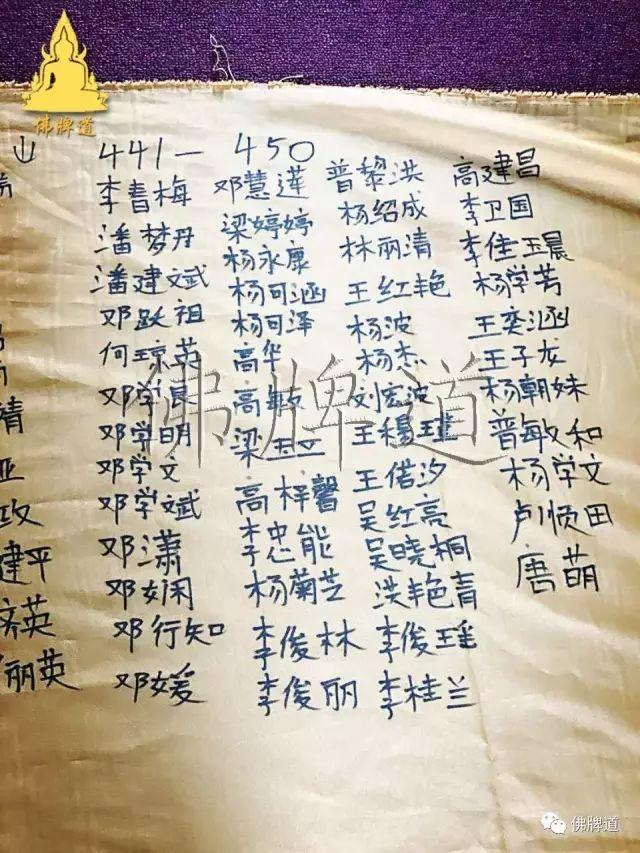 佛牌道
441－450
李春梅 邓慧莲 普黎洪 高建昌
潘梦丹 梁婷婷 杨绍成 李卫国
潘建斌 杨永康 林丽清 李佳玉晨
邓跃祖 杨可涵 王红艳 杨学芳
何琼英 杨可泽 杨波 王奕涵
邓学良 高华 杨杰 王子龙
邓学明 高敏 刘宏波 杨朝妹
邓学文 梁玉立 王杨瑾 普敏和
邓学斌 高梓馨 王偌汐 杨学文
邓潇 李忠能 吴红亮 卢顺田
邓娴 杨菊芝 吴晓桐 唐萌
邓行知 李俊林 洪艳青
邓媛 李俊丽 李俊瑶
李桂兰
靖
亚
攻
建平
英
丽英
佛牌道
佛牌道